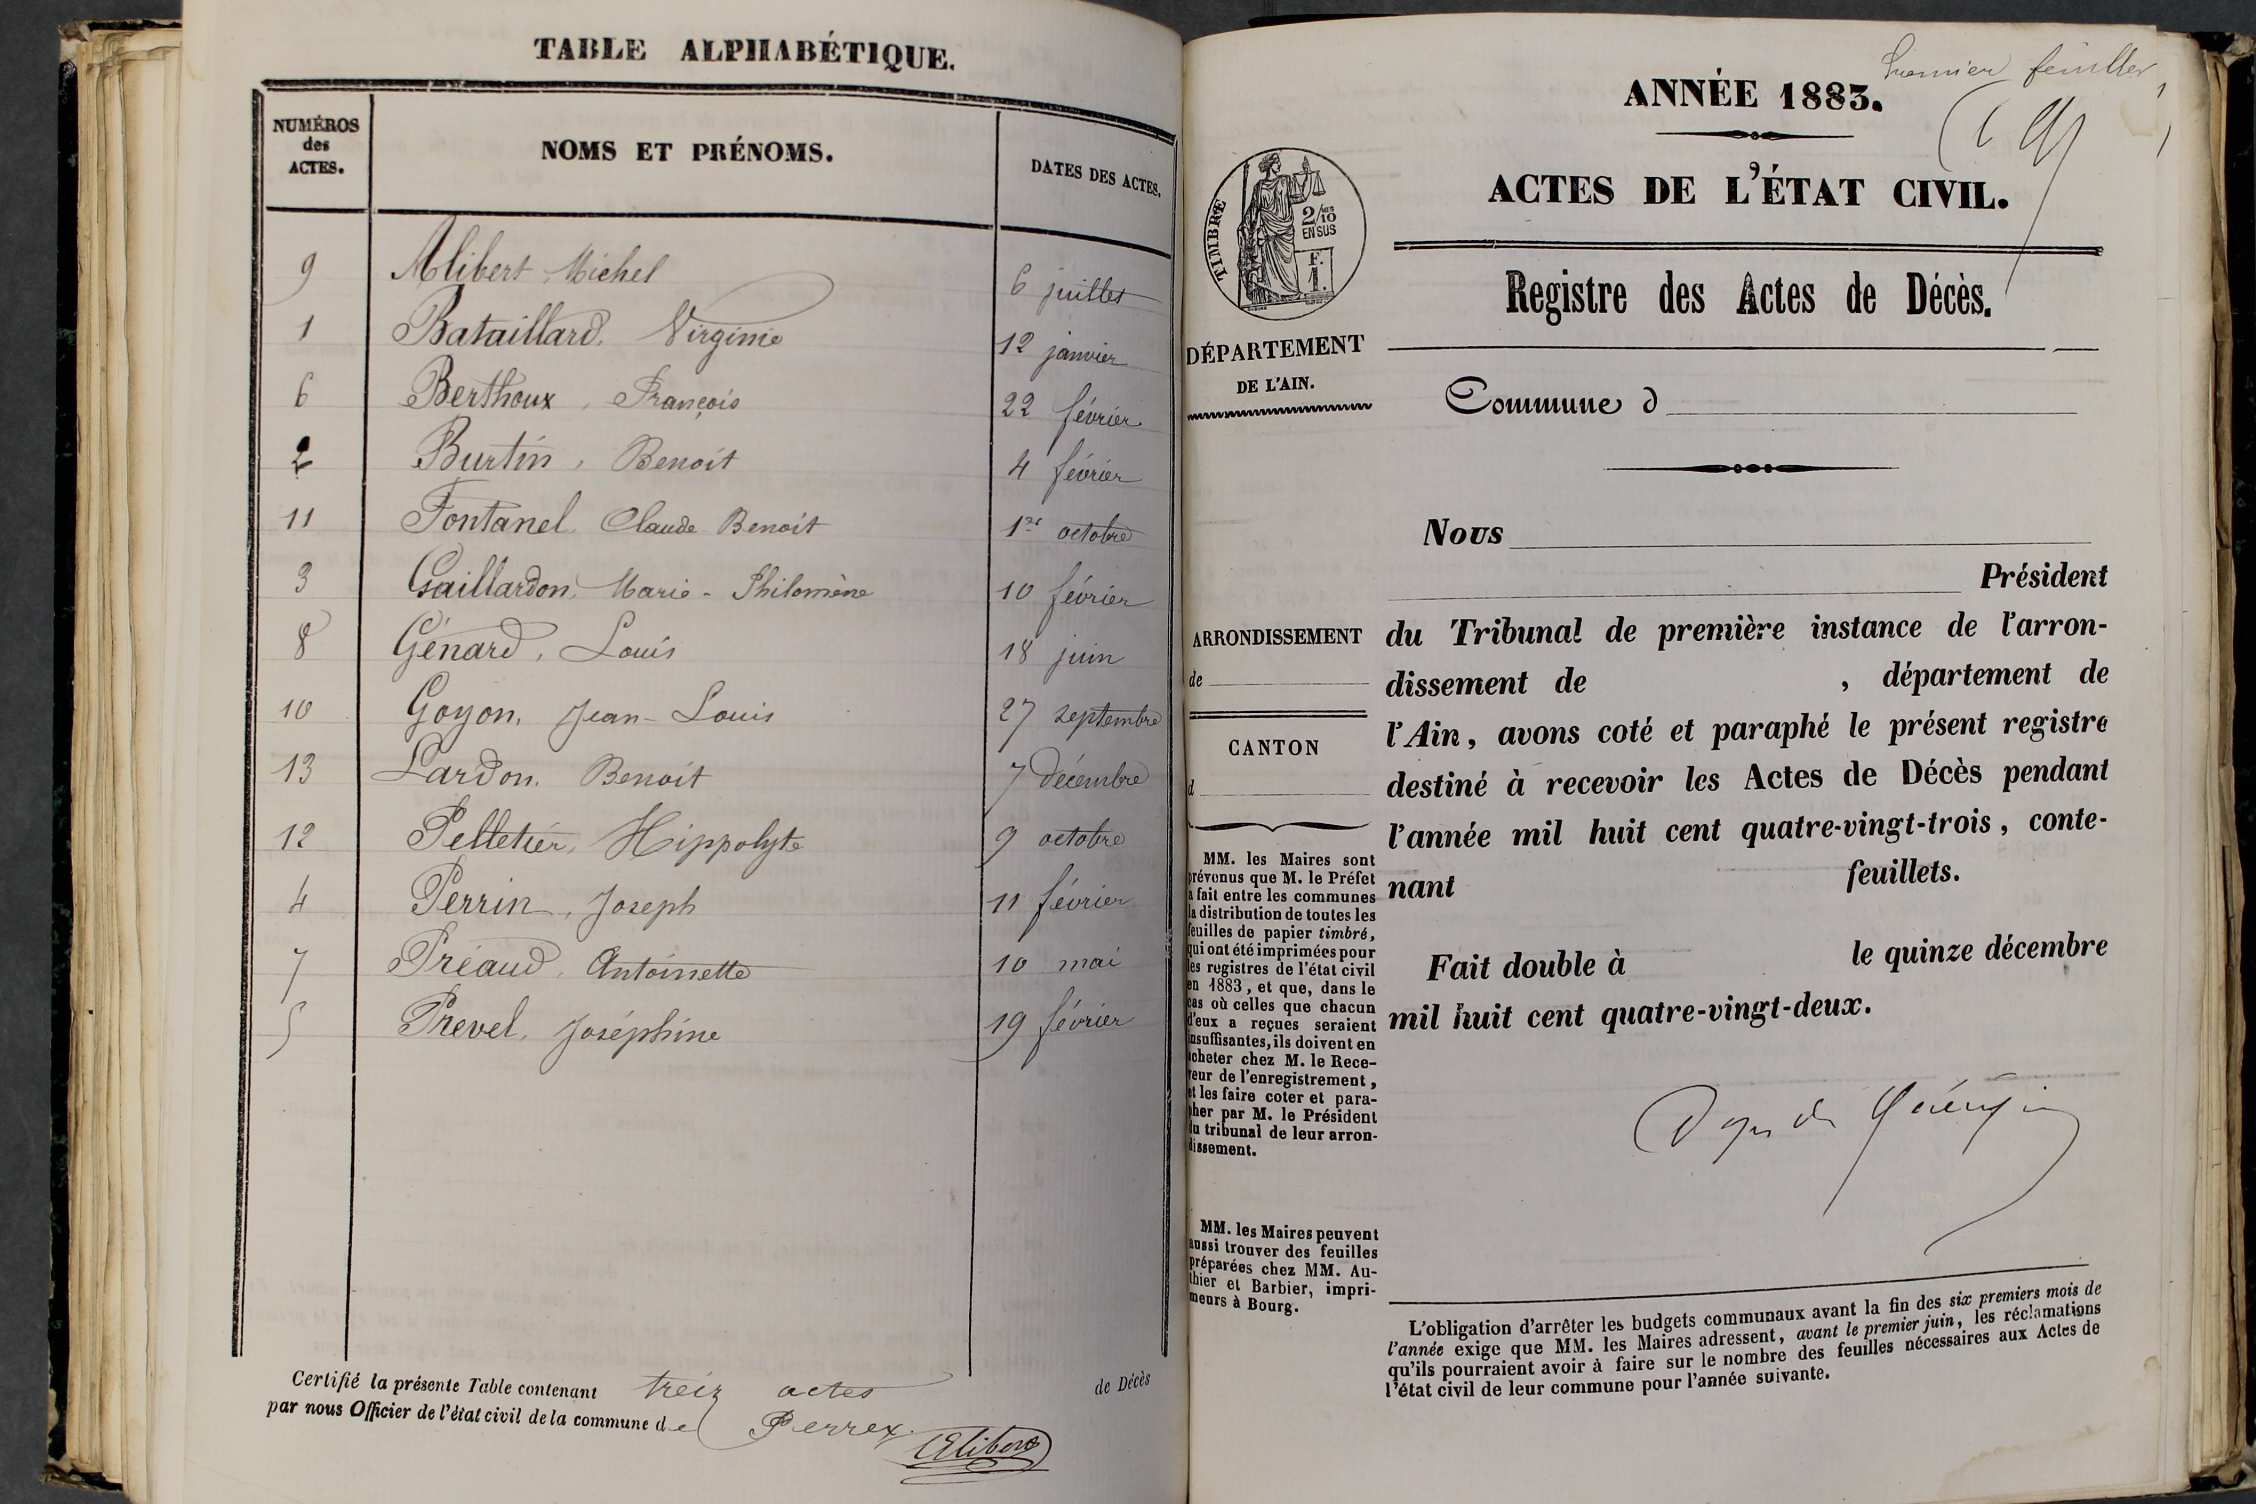 TABLE ALPHABÉTIQUE.
NUMÉROS des ACTES.
NOMS ET PRÉNOMS.
DATES DES ACTES.
9 Alibert Michel 6 juillet
1 Bataillard, Virginie 12 janvier
6 Berthoux, François 22 février
2 Burtin, Benoit 4 février
11 Fontanel, Claude Benoit 1er octobre
3 Gaillardon, Marie-Philomène 10 février
8 Génard, Louis 18 juin
10 Goyon, Jean-Louis 27 septembre
13 Lardon, Benoit 7 décembre
12 Pelletier, Hippolyte 9 octobre
4 Perrin, Joseph 11 février
7 Préaud, Antoinette 10 mai
5 Prevel, Joséphine 19 février
Certifié la présente Table contenant treiz actes de Décès
par nous Officier de l'état civil de la commune de Perrex.
Alibert
Premier feuillet
ANNÉE 1883.
ACTES DE L'ÉTAT CIVIL.
TIMBRE
2/10
EN SUS
F.
1.
Registre des Actes de Décès.
DÉPARTEMENT
DE L'AIN.
Commune d
Nous
Président
ARRONDISSEMENT
de
CANTON
d
du Tribunal de première instance de l'arron-
dissement de , département de
l'Ain, avons coté et paraphé le présent registre
destiné à recevoir les Actes de Décès pendant
l'année mil huit cent quatre-vingt-trois, conte-
nant feuillets.
Fait double à le quinze décembre
mil huit cent quatre-vingt-deux.
MM. les Maires sont
prévenus que M. le Préfet
a fait entre les communes
la distribution de toutes les
feuilles de papier timbré,
qui ont été imprimées pour
les registres de l'état civil
en 1883, et que, dans le
cas où celles que chacun
d'eux a reçues seraient
insuffisantes, ils doivent en
acheter chez M. le Rece-
veur de l'enregistrement,
et les faire coter et para-
pher par M. le Président
du tribunal de leur arron-
dissement.
MM. les Maires peuvent
aussi trouver des feuilles
préparées chez MM. Au-
thier et Barbier, impri-
meurs à Bourg.
L'obligation d'arrêter les budgets communaux avant la fin des six premiers mois de
l'année exige que MM. les Maires adressent, avant le premier juin, les réclamations
qu'ils pourraient avoir à faire sur le nombre des feuilles nécessaires aux Actes de
l'état civil de leur commune pour l'année suivante.